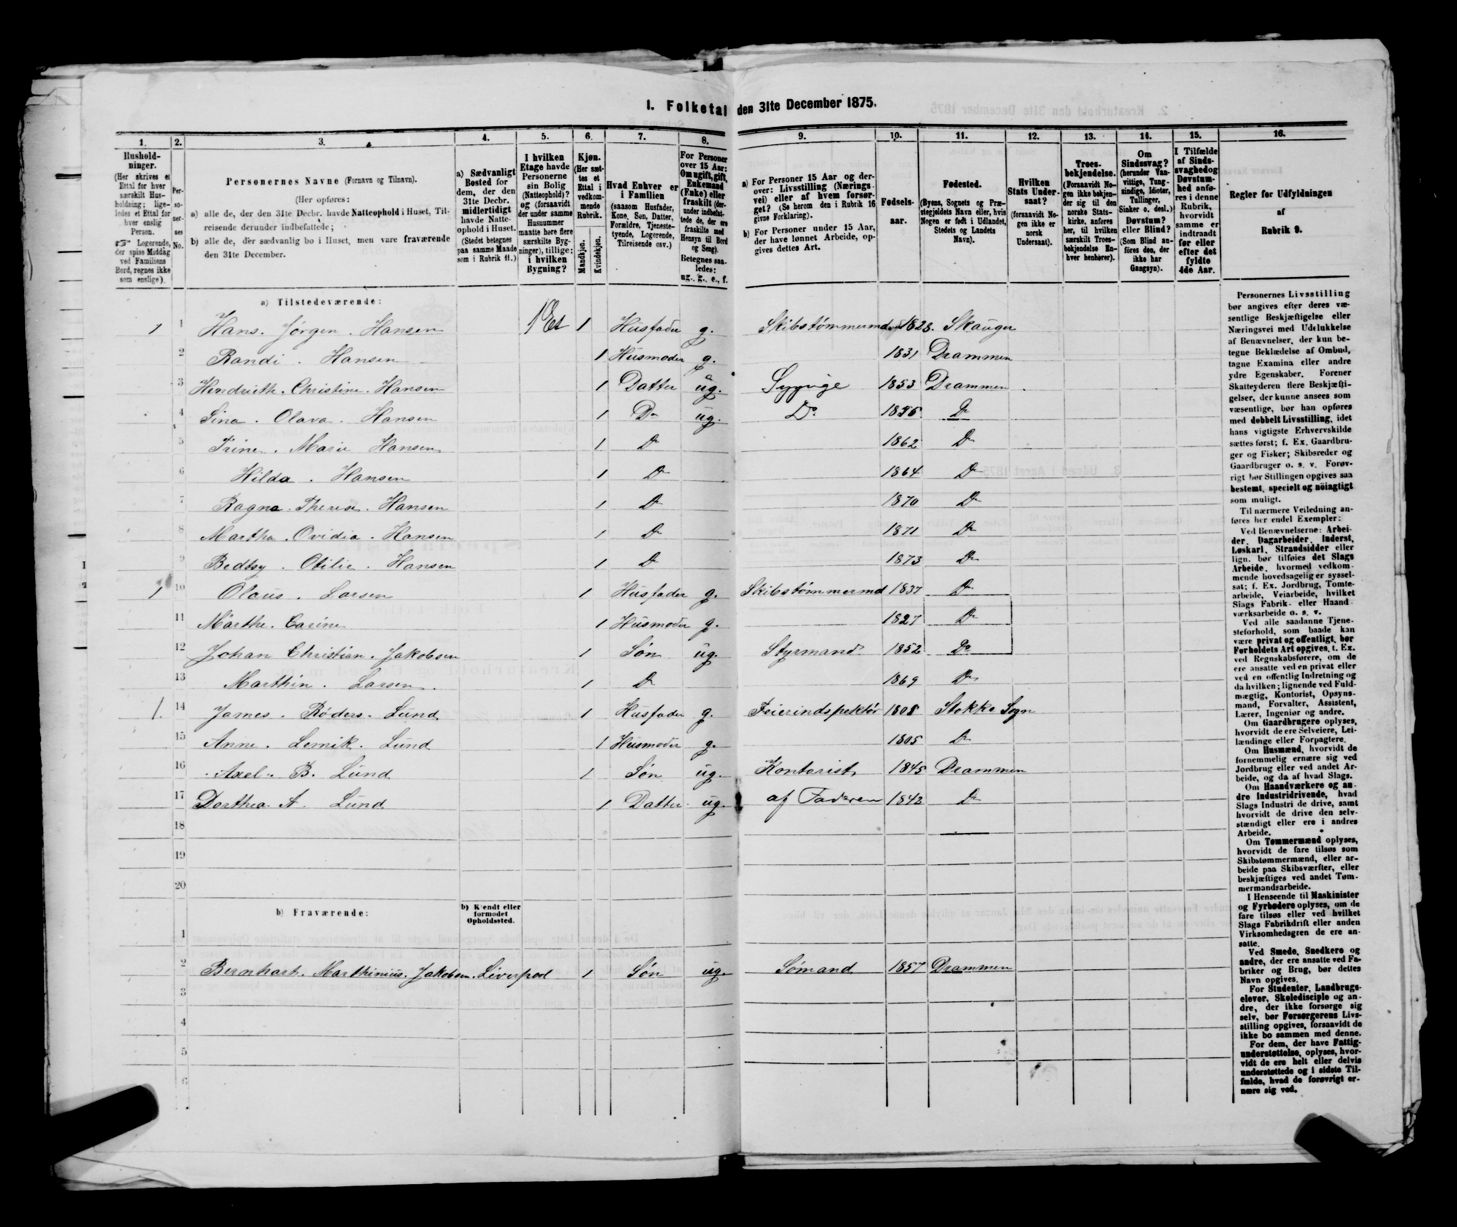 I. Folketal den 31te December 1875.
1. 2. 3. 4. 5. 6. 7. 8. 9. 10. 11. 12. 13. 14. 15. 16.
Husholdninger.
(Her skrives et Ettal for hver særskilt Husholdning; ligeledes et Ettal for hver enslig Person.
☞ Logerende, der spise Middag ved Familiens Bord, regnes ikke som enslige).
Personernes No.
Personernes Navne (Fornavn og Tilnavn).
(Her opføres:
a) alle de, der den 31te Decbr. havde Natteophold i Huset, Tilreisende derunder indbefattede;
b) alle de, der sædvanlig bo i Huset, men vare fraværende den 31te December.
a) Sædvanligt Bosted for dem, der den 31te Decbr. midlertidigt havde Natteophold i Huset.
(Stedet betegnes paa samme Maade som i Rubrik 11.)
I hvilken Etage havde Personerne sin Bolig (Natteophold)? og (forsaavidt der under samme Husnummer maatte høre flere særskilte Bygninger), tillige: i hvilken Bygning?
Kjøn.
(Her sættes et Ettal i vedkommende Rubrik.
Mandkjøn. Kvindekjøn.
Hvad Enhver er i Familien
(saasom Husfader, Kone, Søn, Datter, Forældre, Tjenestetyende, Logerende, Tilreisende osv.)
For Personer over 15 Aar: Om ugift, gift, Enkemand (Enke) eller fraskilt (derunder indbefattede de, der ere fraskilte med Hensyn til Bord og Seng).
Betegnes saaledes: ug., g., e., f.
a) For Personer 15 Aar og derover: Livsstilling (Næringsvei) eller af hvem forsørget? (Se herom den i Rubrik 16 givne Forklaring).
b) For Personer under 15 Aar, der have lønnet Arbeide, opgives dettes Art.
Fødselsaar.
Fødested.
(Byens, Sognets og Præstegjeldets Navn eller, hvis Nogen er født i Udlandet, Stedets og Landets Navn).
Hvilken Stats Undersaat?
(forsaavidt Nogen ikke er norsk Undersaat).
Troesbekjendelse.
(Forsaavidt Nogen ikke bekjender sig til den norske Statskirke, anføres her, til hvilken særskilt Troesbekjendelse Enhver henhører).
Om Sindssvag? (herunder Vanvittige, Tungsindige, Idioter, Tullinger, Sinker o. desl.)
Døvstum? eller Blind? (Som Blind anføres den, der ikke har Gangsyn).
I Tilfælde af Sindssvaghed og Døvstumhed anføres i denne Rubrik, hvorvidt samme er indtraadt før eller efter det fyldte 4de Aar.
Regler for Udfyldningen af Rubrik 9.
a) Tilstedeværende:
1 1 Hans. Jørgen. Hansen 1 Et 1 Husfader g. Skibstømmermd 1828. Skauger
2 Randi. Hansen 1 Husmoder g. 1831 Drammen
3 Hendrith. Christine. Hansen 1 Datter ug. Sypige 1853 Drammen
4 Sina. Olava. Hansen 1 Do ug. Do 1856 Do
5 Trine. Marie Hansen 1 Do 1862 Do
6 Hilda. Hansen 1 Do 1864 Do
7 Ragna. Therese. Hansen 1 Do 1870 Do
8 Martha. Ovidia. Hansen 1 Do 1871 Do
9 Bedtsy. Otilie. Hansen 1 Do 1873 Do
1 10 Olaus. Larsen 1 Husfader g. Skibstømmermd 1837 Do
11 Marthe. Carine 1 Husmoder g. 1827 Do
12 Johan Christian. Jakobsen 1 Søn ug. Styrmand. 1852 Do
13 Marthin. Larsen. 1 Do 1869 Do
1. 14 James. Røders. Lund 1 Husfader g. Feierindspektør 1808 Stokke Sogn
15 Anne. Lernik. Lund 1 Husmoder g. 1805 Do
16 Axel. B. Lund 1 Søn ug. Kontorist, 1845 Drammen
17 Dorthea. A. Lund 1 Datter ug. af Faderen 1842 Do
18
19
20
b) Fraværende:
b) Kjendt eller formodet Opholdssted.
1
2 Bernhart. Marthinius. Jakobsen. Liverpool 1 Søn ug. Sømand 1857 Drammen
3
4
5
6
Personernes Livsstilling bør angives efter deres væsentlige Beskjæftigelse eller Næringsvei med Udelukkelse af Benævnelser, der kun betegne Beklædelse af Ombud, tagne Examina eller andre ydre Egenskaber. Forener Skatteyderen flere Beskjæftigelser, der kunne ansees som væsentlige, bør han opføres med dobbelt Livsstilling, idet hans vigtigste Erhvervskilde sættes først; f. Ex. Gaardbruger og Fisker; Skibsreder og Gaardbruger o. s. v. Forøvrigt bør Stillingen opgives saa bestemt, specielt og nøiagtigt som muligt.
Til nærmere Veiledning anføres her endel Exempler:
Ved Benævnelserne: Arbeider, Dagarbeider, Inderst, Løskarl, Strandsidder eller lign. bør tilføies det Slags Arbeide, hvormed vedkommende hovedsagelig er sysselsat; f. Ex. Jordbrug, Tomtearbeide, Veiarbeide, hvilket Slags Fabrik- eller Haandværksarbeide o. s. v.
Ved alle saadanne Tjenesteforhold, som baade kan være privat og offentligt, bør Forholdets Art opgives, t. Ex. ved Regnskabsførere, om de ere ansatte ved en privat eller ved en offentlig Indretning og da hvilken; lignende ved Fuldmægtig, Kontorist, Opsynsmand, Forvalter, Assistent, Lærer, Ingeniør og andre.
Om Gaardbrugere oplyses, hvorvidt de ere Selveiere, Leilændinge eller Forpagtere.
Om Husmænd, hvorvidt de fornemmelig ernære sig ved Jordbrug eller ved andet Arbeide, og da af hvad Slags.
Om Haandværkere og andre Industridrivende, hvad Slags Industri de drive, samt hvorvidt de drive den selvstændigt eller ere i andres Arbeide.
Om Tømmermænd oplyses, hvorvidt de fare tilsøs som Skibstømmermænd, eller arbeide paa Skibsværfter, eller beskjæftiges ved andet Tømmermandsarbeide.
I Henseende til Maskinister og Fyrbødere oplyses, om de fare tilsøs eller ved hvilket Slags Fabrikdrift eller anden Virksomhedsgren de ere ansatte.
Ved Smede, Snedkere og andre, der ere ansatte ved Fabriker og Brug, bør dettes Navn opgives.
For Studenter, Landbrugselever, Skoledisciple og andre, der ikke forsørge sig selv, bør Forsørgerens Livsstilling opgives, forsaavidt de ikke bo sammen med denne.
For dem, der have Fattigunderstøttelse, oplyses, hvorvidt de ere helt eller delvis understøttede og i sidste Tilfælde, hvad de forøvrigt ernære sig ved.